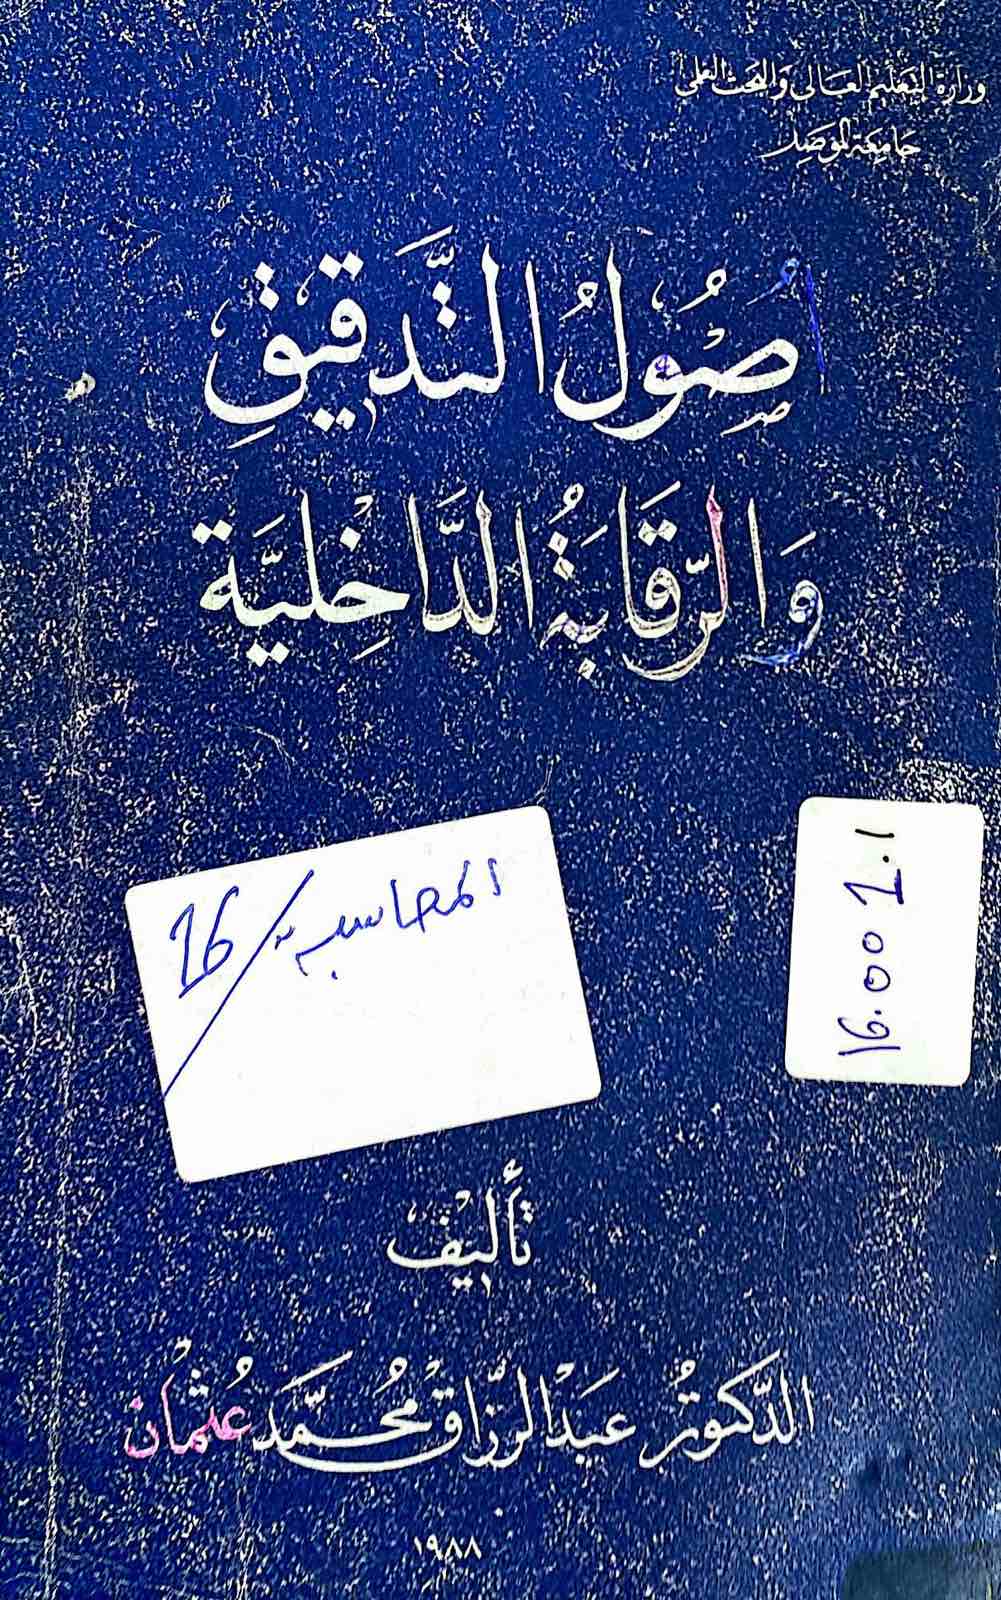 وزارة التعليم العالي والبحث العلمي
جامعة الموصل
اُصُولُ التَّدقيقِ
وَالرِّقَابَةُ الدَّاخِليَّة
المحاسبة/16
16.00 1.1
تأليف
الدَّكتورُ عَبْدالرزّاق مُحَمَّد عُثْمان
١٩٨٨